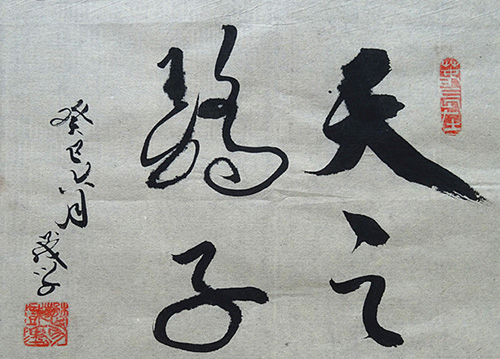 天之
驕子
癸巳八月